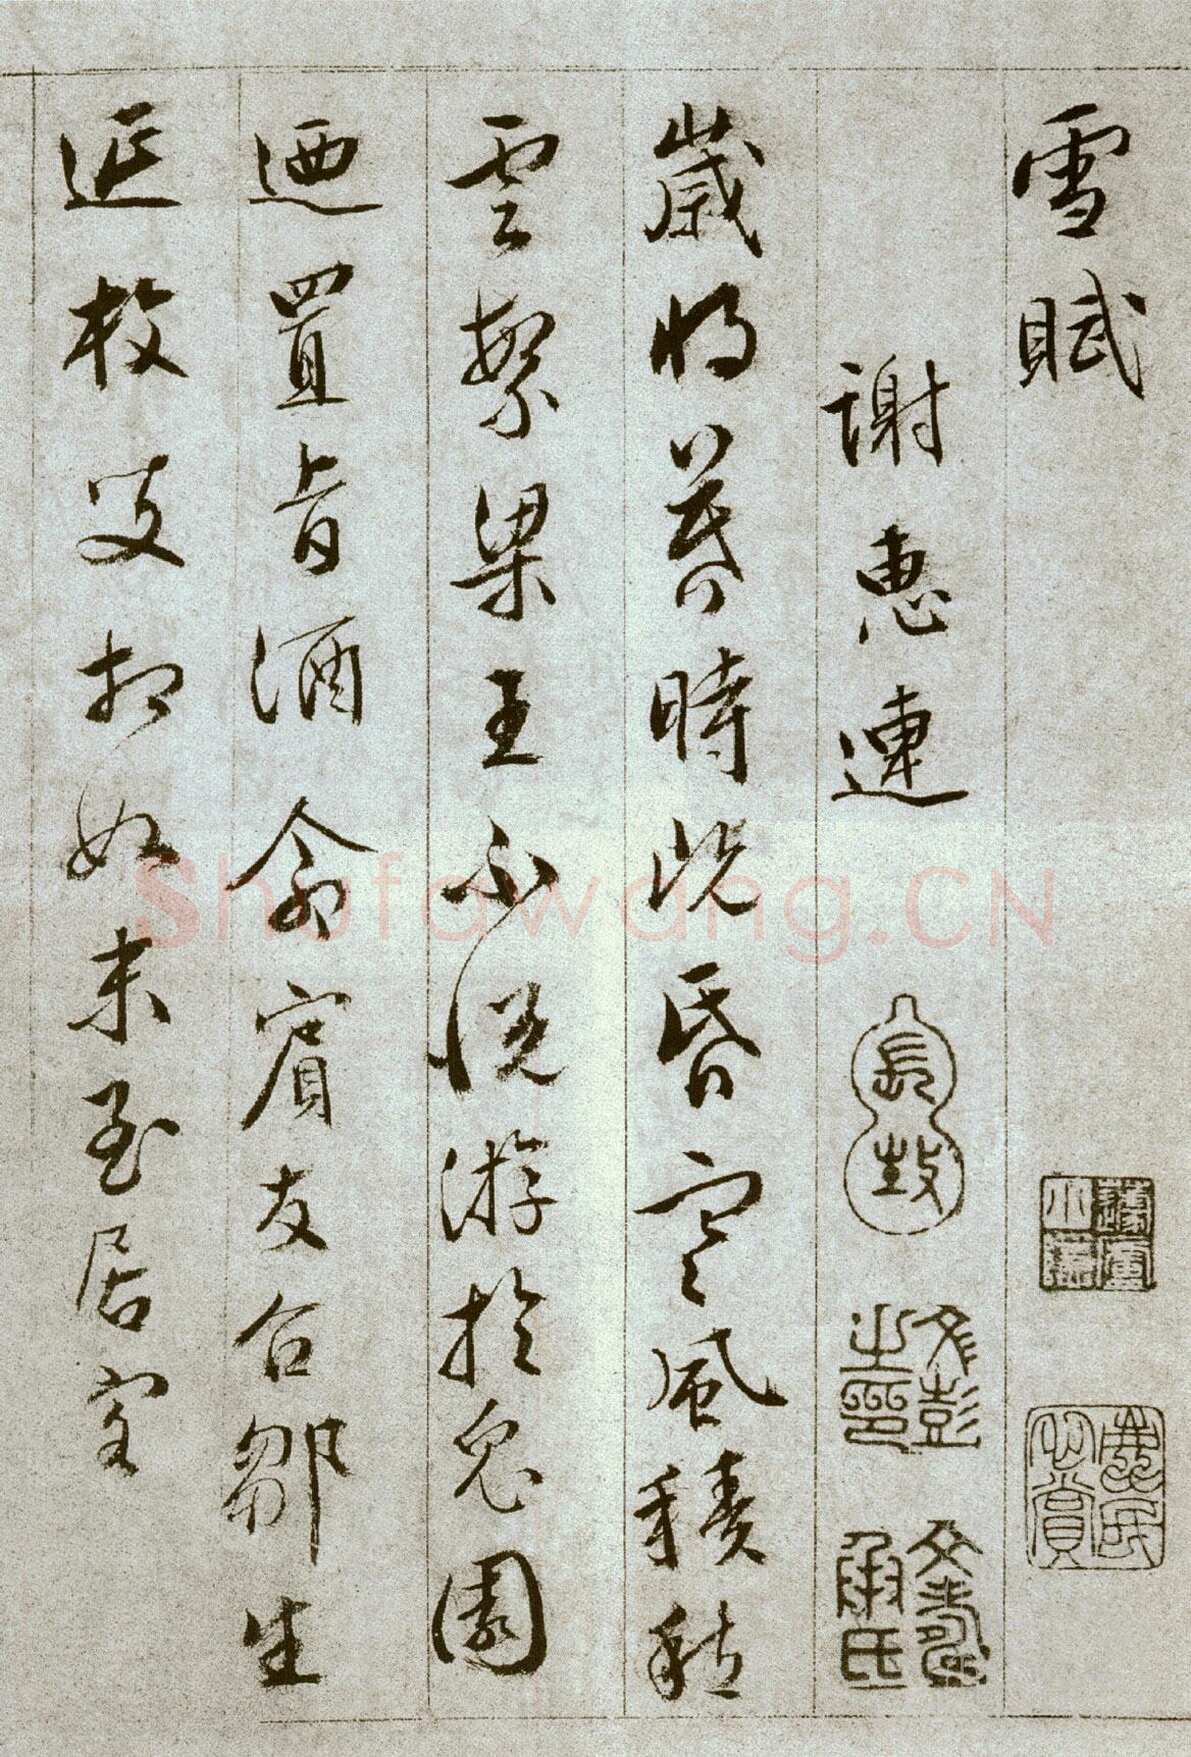 雪賦
謝惠連
歲將暮時既昏寒風積愁
雲繁梁王不悅游於兔園
迺置旨酒命賓友召鄒生
延枚叟相如末至居客
文彭之印
文壽承氏
Shufawang.CN